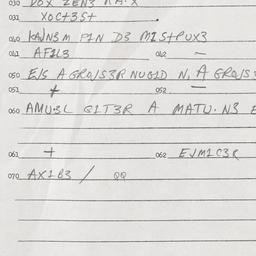 030 VOX ZEN3 KA.X
031 XOCT3ST .
040 KAJN3M PIN D3 MISTPUX3
041 AF1L3 042 —
050 E/S A GRO/S3R NUGID N, A GRO/S
051 + 052 —
060 AMUSL GIT3R A MATU. N3 E
061 + 062 EJM1C3R
070 AX1B3 / QQ